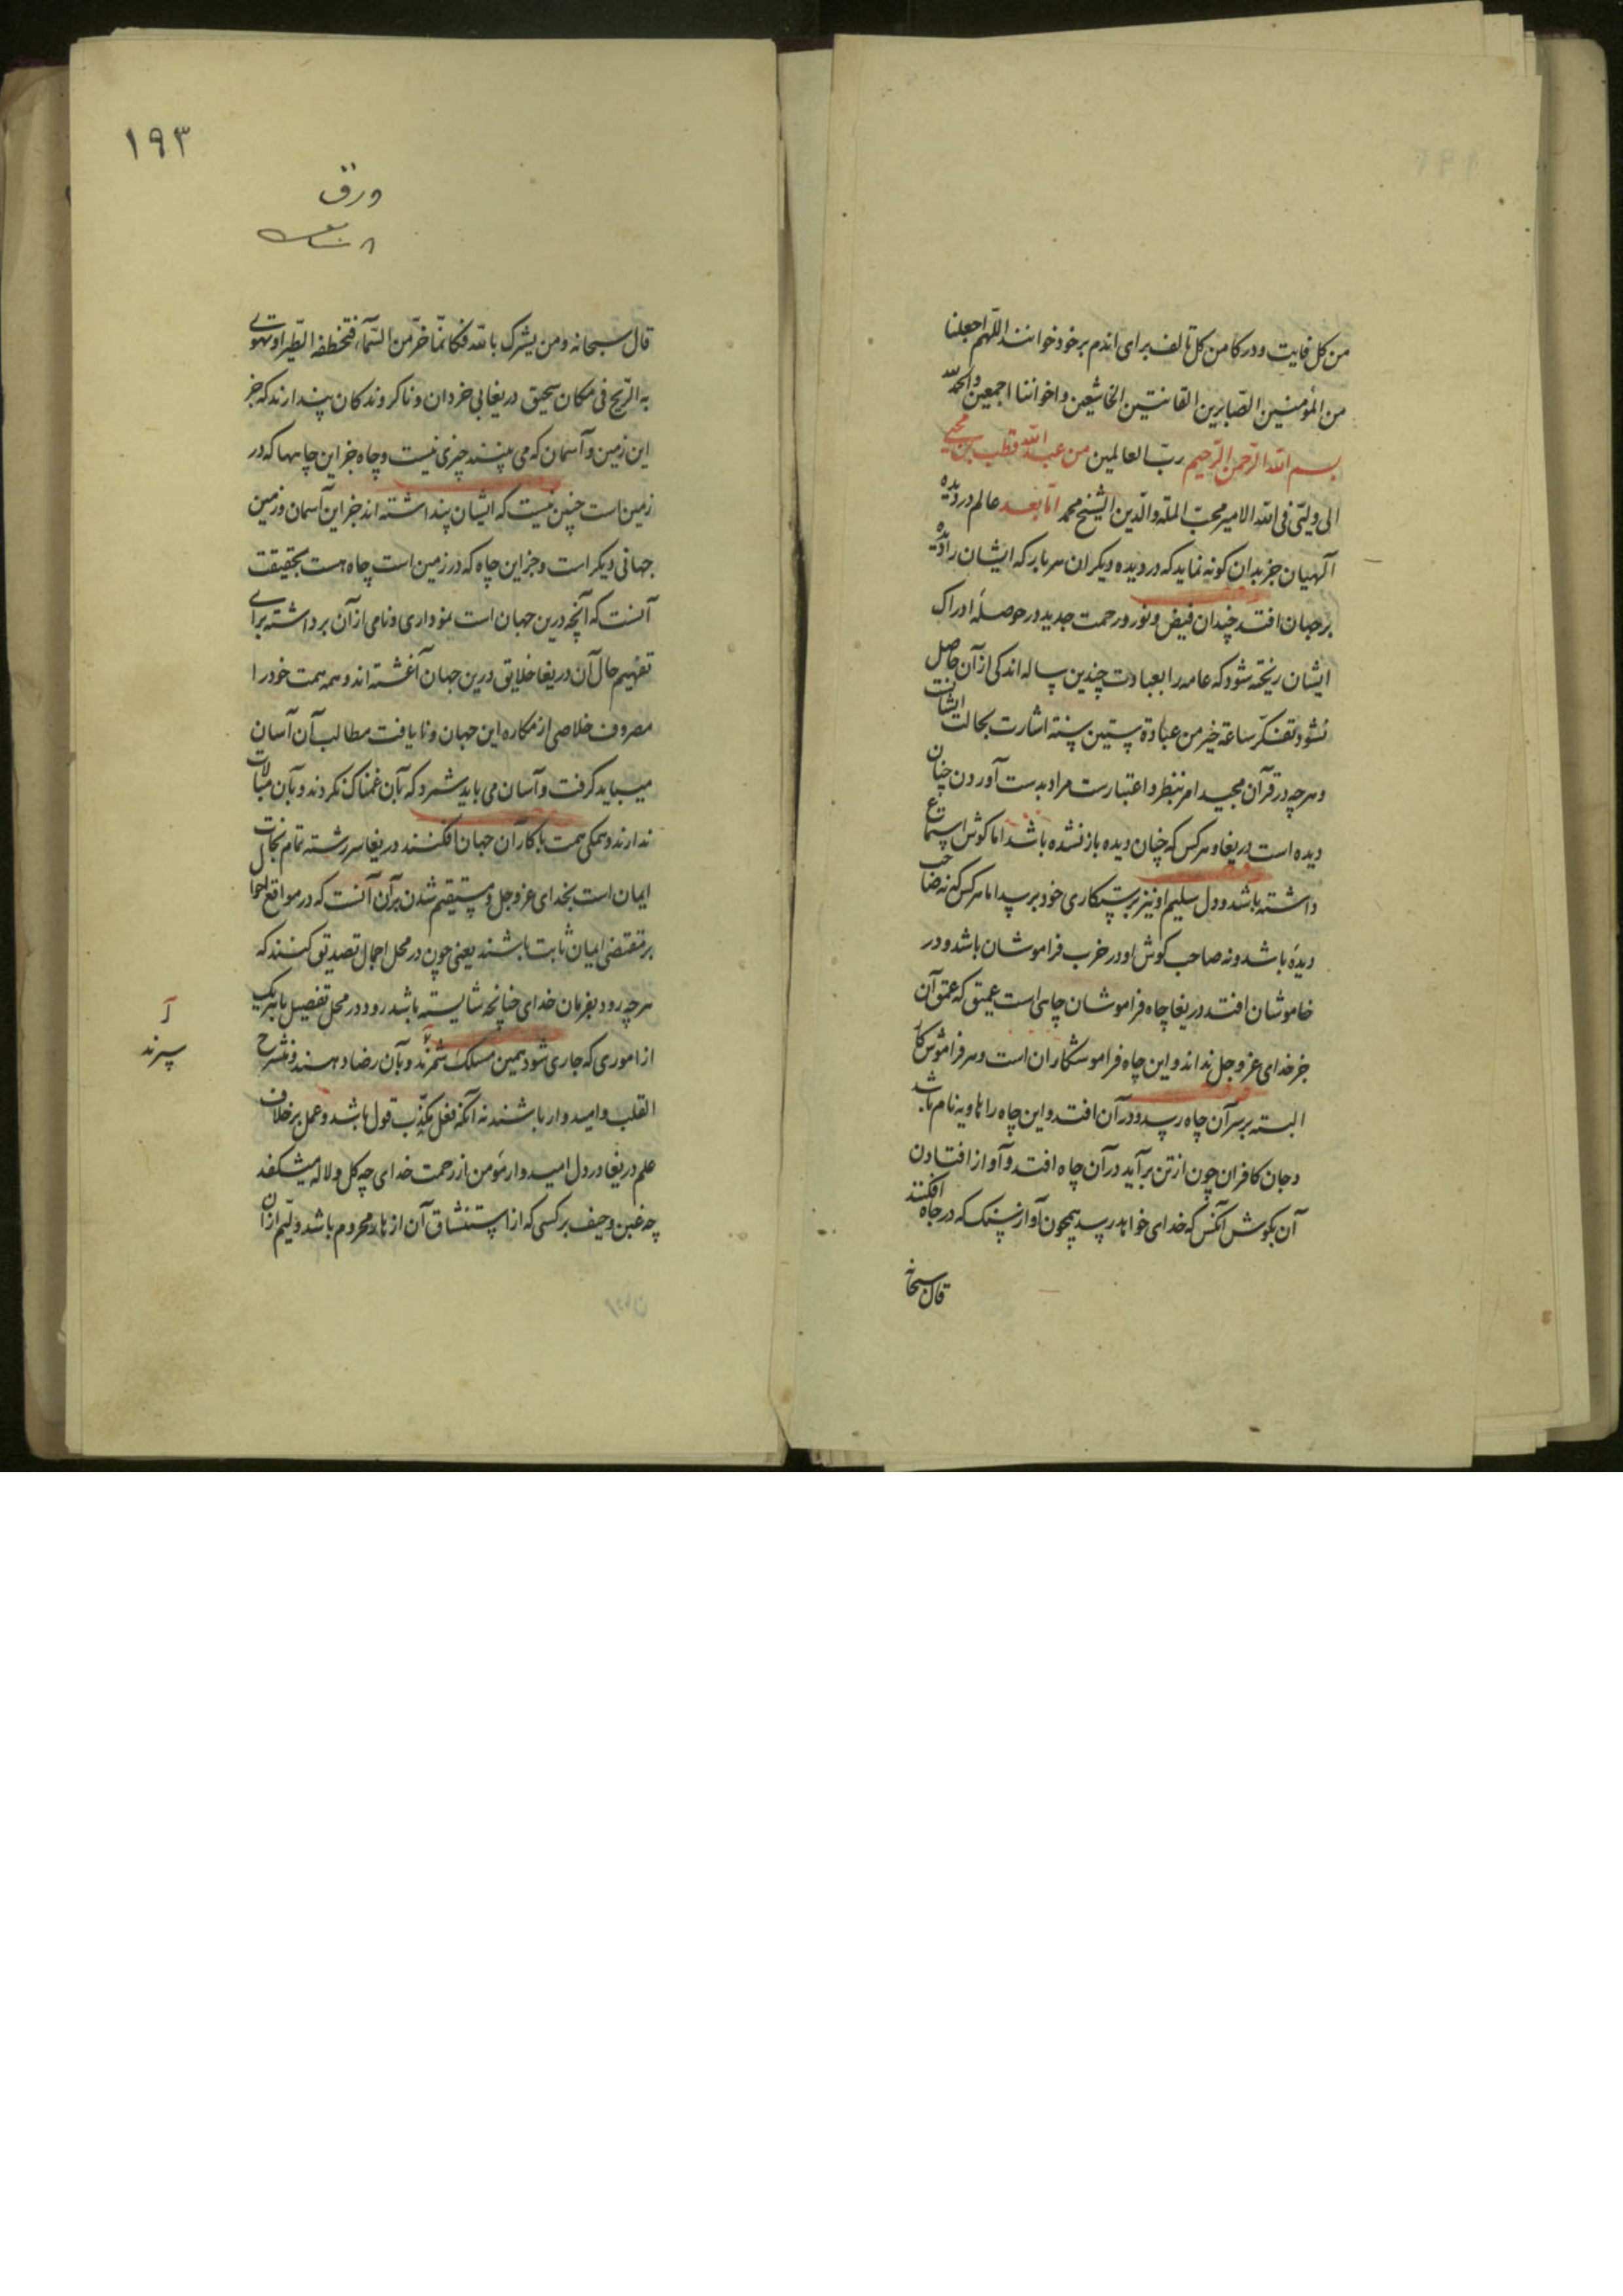 من کل فایت و درکا من کل تالف برای اندم بر خود خوانند اللّهم اجعلنا
من المؤمنین الصّابرین القانتین الخاشعین و اخواننا اجمعین والحمدلله
بسم الله الرّحمن الرّحیم ربّ العالمین من عبدالله قطب بن محیی
الی ولیّی فی الله الامیر محبّ الملة والدّین الشیخ محمد امّا بعد عالم در دیده
آلهیان جز بدان کونه نماید که در دیده دیکران هر بار که ایشان را دیده
بر جهان افتد چندان فیض و نور و رحمت جدید در حوصلهٔ ادراک
ایشان ریخته شود که عامه را بعبادت چندین ساله اندکی از آن حاصل
نشود تفکّر ساعة خیر من عبادة ستین سنة اشارت بحالت ایشانت
و هرچه در قرآن مجید امر بنظر و اعتبارست مراد بدست آوردن چنان
دیده است دریغا و هر کس که چنان دیده باز نشده باشد اما کوش استماع
داشته باشد و دل سلیم او نیز برستکاری خود برسد اما هر کس که نه صاحب
دیدهٔ باشد و نه صاحب کوش او در خرب فراموشان باشد و در
خاموشان افتد دریغا چاه فراموشان چاهی است عمیق که عمق آن
جز خدای عزوجل نداند و این چاه فراموشکاران است و هر فراموش کار
البته بر سر آن چاه رسد و در آن افتد و این چاه را هاویه نام باشد
و جان کافران چون از تن برآید در آن چاه افتد و آواز افتادن
آن بکوش آنکس که خدای خواهد رسد همچون آواز سنک که در چاه افکنند
قال سبحانه
١٩٣
ورق
قال سبحانه ومن یشرک بالله فکانّما خرّ من السّمآء فتخطفه الطّیر او تهوی
به الرّیح فی مکان سحیق دریغا بی خردان و ناکروندکان پندارند که جز
این زمین و آسمان که می بینند چیزی نیست و چاه جز این چاهها که در
زمین است چنین نیست که ایشان پنداشته اند جز این آسمان و زمین
جهانی دیکر است و جز این چاه که در زمین است چاه هست بحقیقت
آنست که آنچه درین جهان است نموداری و نامی از آن برداشته برای
تفهیم حال آن دریغا خلایق درین جهان آغشته اند و همه همت خود را
مصروف خلاصی از مکاره این جهان و نایافت مطالب آن آسان
میباید کرفت و آسان می باید شمرد که بآن غمناک نکردند و بآن مبالات
ندارند و همکی همت با کار آن جهان افکنند دریغا سررشته تمام نجات
ایمان است بخدای عزوجل و مستقیم شدن بر آن آنست که در مواقع احوال
بر مقتضی ایمان ثابت باشند یعنی چون در محل اجمال تصدیق کنند که
هرچه رود بفرمان خدای چنانچه شایسته باشد رود در محل تفصیل با هر یک
از اموری که جاری شود همین مسلک شمرند و بآن رضا دهند و منشرح
القلب و امیدوار باشند نه آنکه فعل مکذّب قول باشد و عمل بر خلاف
علم دریغا در دل امیدوار مؤمن از رحمت خدای چه کل و لاله میشکفد
چه غبن و حیف بر کسی که از استنشاق آن ازهار محروم باشد و لیم از آن
سپرند